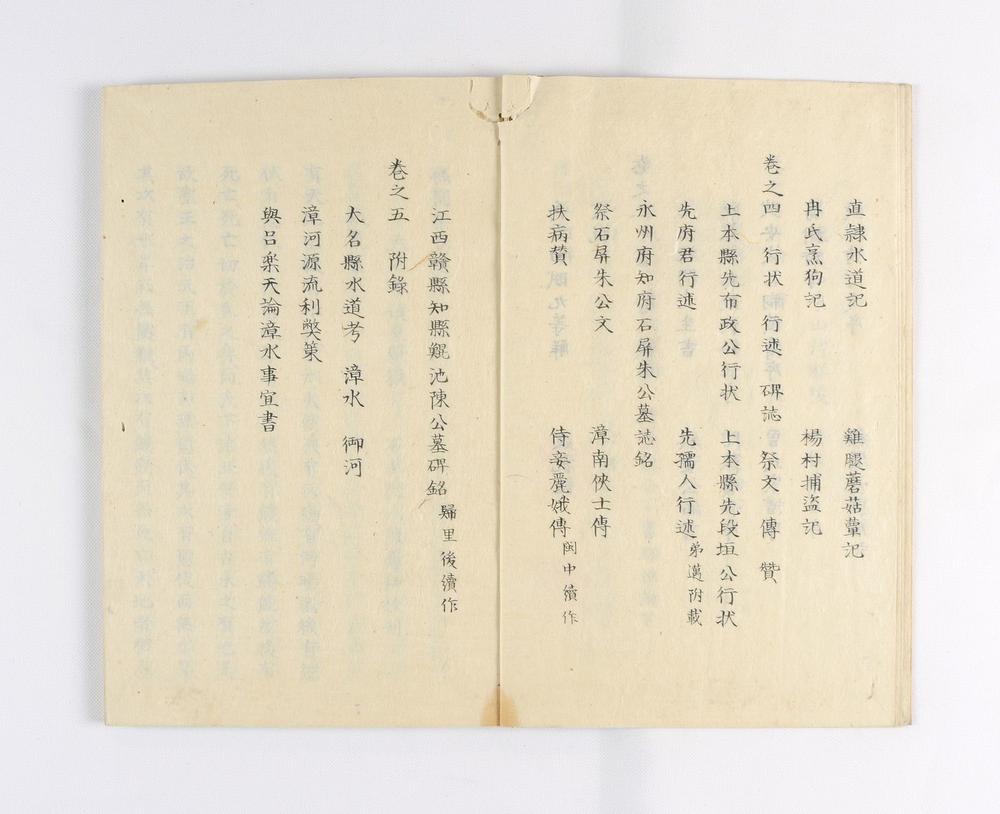 直隸水道記 雞腿蘑菇蕈記
冉氏烹狗記 楊村捕盜記
卷之四 行狀 行述 碑誌 祭文 傳 贊
上本縣先布政公行狀 上本縣先段垣公行狀
先府君行述 先孺人行述 弟邁附載
永州府知府石屏朱公墓誌銘
祭石屏朱公文 漳南俠士傳
扶病贊 侍妾麗娥傳 閩中續作
江西贛縣知縣鯤池陳公墓碑銘 歸里後續作
卷之五 附錄
大名縣水道考 漳水 御河
漳河源流利獘策
與呂樂天論漳水事宜書